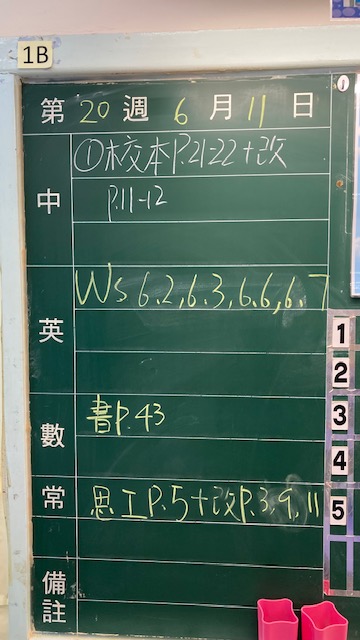 1B
第 20 週 6 月 11 日
中 ①校本P.21-22+改
P.11-12
英 Ws 6.2, 6.3, 6.6, 6.7
數 書P.43
常 思工P.5+改P.3, 9, 11
備註
1
2
3
4
5